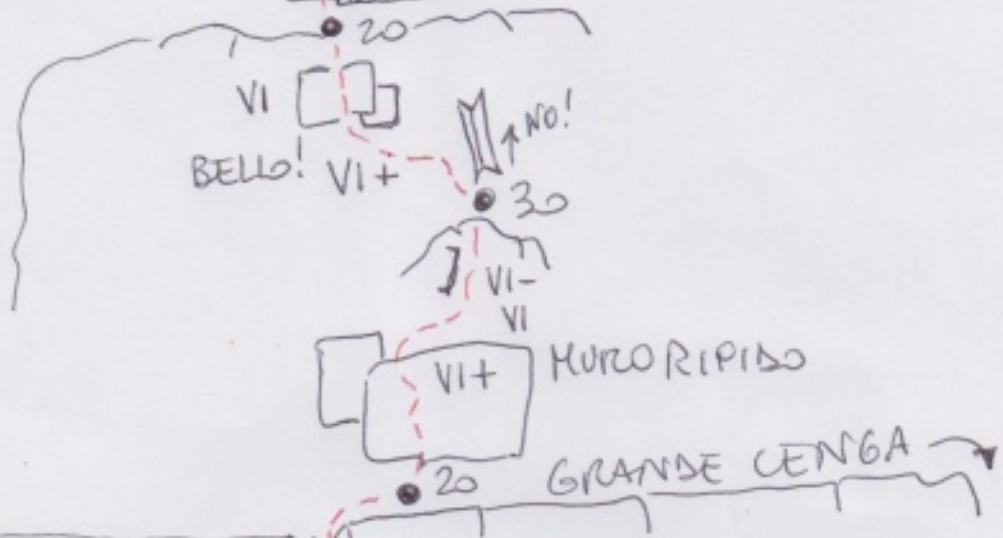 20
VI
NO!
BELLO!
VI+
30
VI-
VI
VI+
MURO RIPIDO
20
GRANDE CENGA